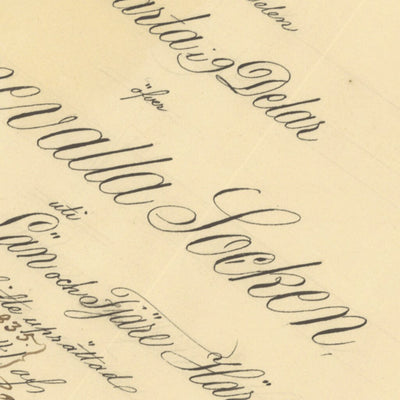 delen
arta i 9 Delar
öfver
evalla Socken,
uti
Sàm och Fjäre Här
ifte upprättad
835
af